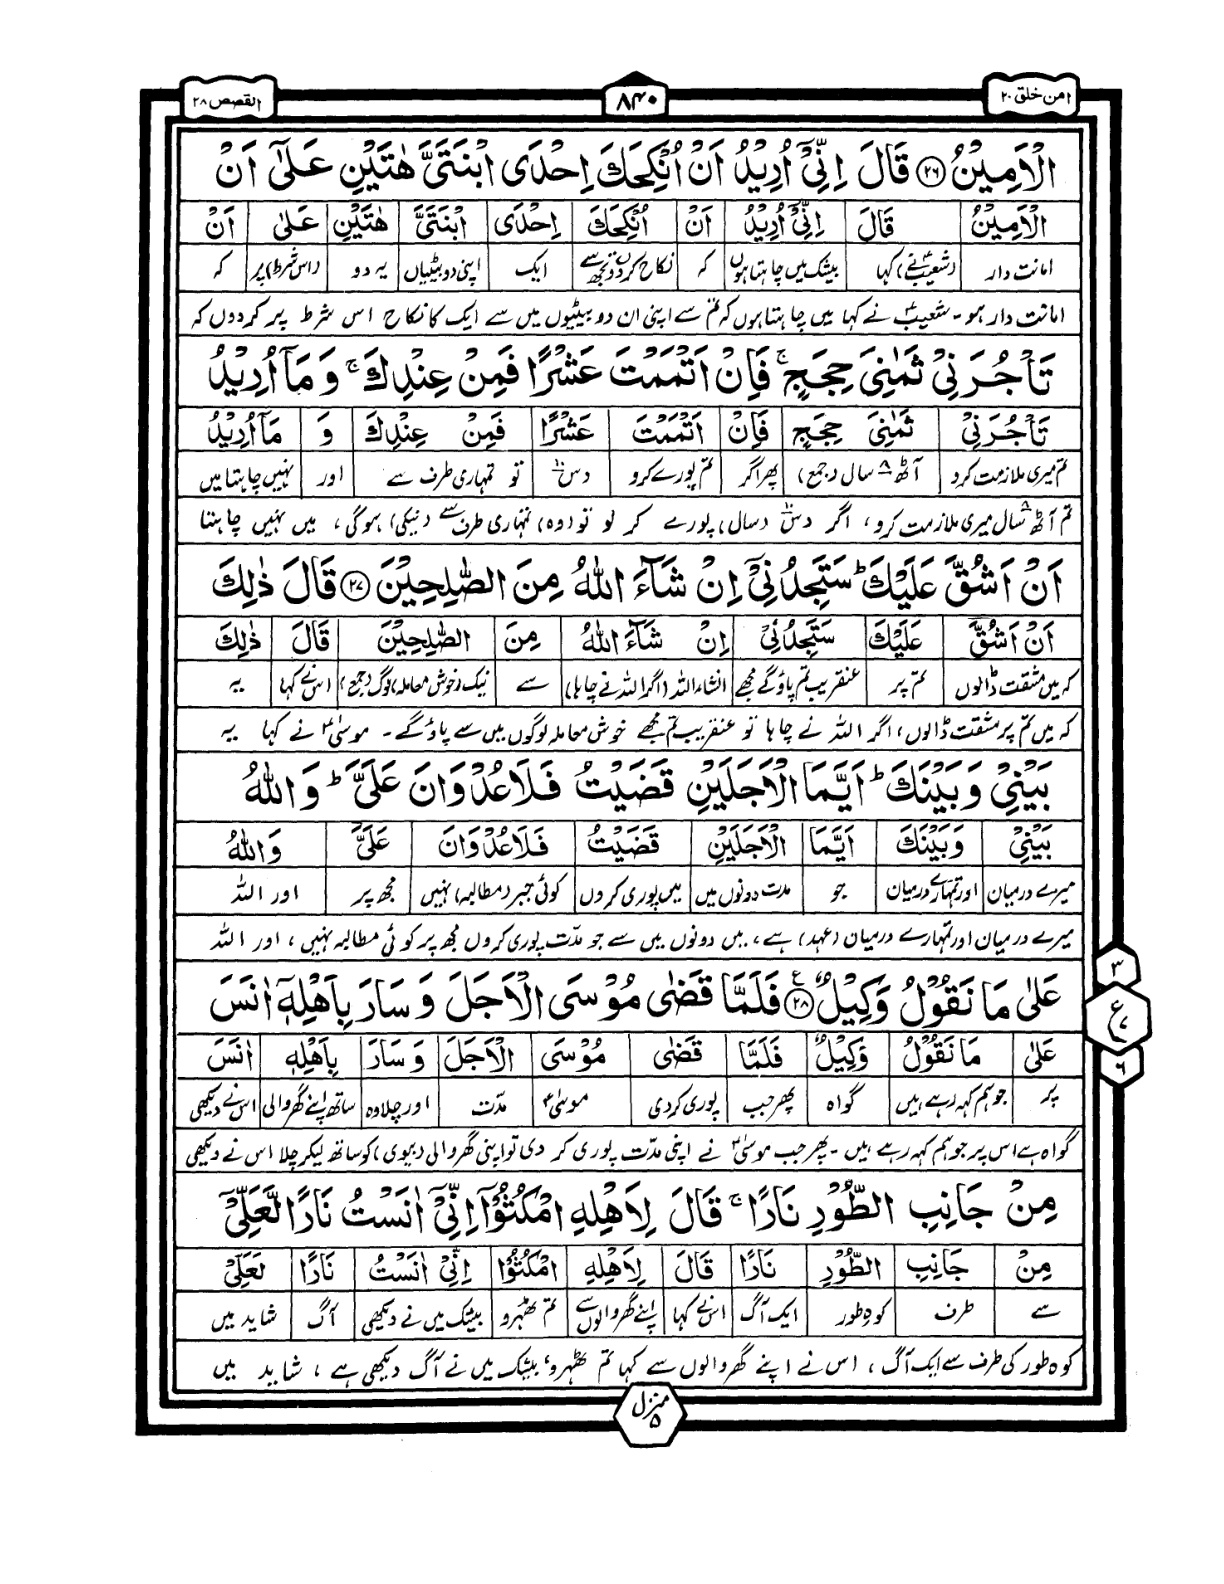 امن خلق ۲۰
۸۴۰
القصص ۲۸
الْاَمِيْنُ ۝۲۶ قَالَ اِنِّىْۤ اُرِيْدُ اَنْ اُنْكِحَكَ اِحْدَى ابْنَتَىَّ هٰتَيْنِ عَلٰٓى اَنْ
الْاَمِيْنُ قَالَ اِنِّىْۤ اُرِيْدُ اَنْ اُنْكِحَكَ اِحْدَى ابْنَتَىَّ هٰتَيْنِ عَلٰٓى اَنْ
امانت دار (شعیبؑ نے) کہا بیشک میں چاہتا ہوں کہ نکاح کردوں تجھ سے ایک اپنی دو بیٹیاں یہ دو (اس شرط) پر کہ
امانت دار ہو۔ شعیبؑ نے کہا میں چاہتا ہوں کہ تم سے اپنی ان دو بیٹیوں میں سے ایک کا نکاح اس شرط پر کردوں کہ
تَاْجُرَنِىْ ثَمٰنِىَ حِجَجٍ ۚ فَاِنْ اَتْمَمْتَ عَشْرًا فَمِنْ عِنْدِكَ ۚ وَ مَاۤ اُرِيْدُ
تَاْجُرَنِىْ ثَمٰنِىَ حِجَجٍ فَاِنْ اَتْمَمْتَ عَشْرًا فَمِنْ عِنْدِكَ وَ مَاۤ اُرِيْدُ
تم میری ملازمت کرو آٹھ ۸ سال (جمع) پھر اگر تم پورے کرو دس ۱۰ تو تمہاری طرف سے اور نہیں چاہتا میں
تم آٹھ ۸ سال میری ملازمت کرو، اگر دس ۱۰ (سال) پورے کر لو تو (وہ) تمہاری طرف سے (نیکی) ہوگی، میں نہیں چاہتا
اَنْ اَشُقَّ عَلَيْكَ ؕ سَتَجِدُنِىْۤ اِنْ شَآءَ اللّٰهُ مِنَ الصّٰلِحِيْنَ ۝۲۷ قَالَ ذٰلِكَ
اَنْ اَشُقَّ عَلَيْكَ سَتَجِدُنِىْۤ اِنْ شَآءَ اللّٰهُ مِنَ الصّٰلِحِيْنَ قَالَ ذٰلِكَ
کہ میں مشقت ڈالوں تم پر عنقریب تم پاؤگے مجھے انشاء اللہ (اگر اللہ نے چاہا) سے نیک (خوش معاملہ) لوگ (جمع) اس نے کہا یہ
کہ میں تم پر مشقت ڈالوں، اگر اللہ نے چاہا تو عنقریب تم مجھے خوش معاملہ لوگوں میں سے پاؤ گے۔ موسیٰؑ نے کہا یہ
بَيْنِىْ وَ بَيْنَكَ ؕ اَيَّمَا الْاَجَلَيْنِ قَضَيْتُ فَلَا عُدْوَانَ عَلَىَّ ؕ وَ اللّٰهُ
بَيْنِىْ وَ بَيْنَكَ اَيَّمَا الْاَجَلَيْنِ قَضَيْتُ فَلَا عُدْوَانَ عَلَىَّ وَاللّٰهُ
میرے درمیان اور تمہارے درمیان جو مدت دونوں میں میں پوری کروں کوئی جبر (مطالبہ) نہیں مجھ پر اور اللہ
میرے درمیان اور تمہارے درمیان (عہد) ہے، میں دونوں میں سے جو مدّت پوری کروں مجھ پر کوئی مطالبہ نہیں، اور اللہ
عَلٰى مَا نَقُوْلُ وَكِيْلٌ ۝۲۸ ع فَلَمَّا قَضٰى مُوْسَى الْاَجَلَ وَ سَارَ بِاَهْلِهٖۤ اٰنَسَ
عَلٰى مَا نَقُوْلُ وَكِيْلٌ فَلَمَّا قَضٰى مُوْسَى الْاَجَلَ وَ سَارَ بِاَهْلِهٖۤ اٰنَسَ
پر جو ہم کہہ رہے ہیں گواہ پھر جب پوری کردی موسیٰؑ مدّت اور چلا وہ ساتھ اپنے گھر والی اس نے دیکھی
گواہ ہے اس پر جو ہم کہہ رہے ہیں۔ پھر جب موسیٰؑ نے اپنی مدّت پوری کر دی تو اپنی گھر والی (بیوی) کو ساتھ لیکر چلا اس نے دیکھی
۳
ع
۷
۶
مِنْ جَانِبِ الطُّوْرِ نَارًا ۚ قَالَ لِاَهْلِهِ امْكُثُوْۤا اِنِّىْۤ اٰنَسْتُ نَارًا لَّعَلِّىْۤ
مِنْ جَانِبِ الطُّوْرِ نَارًا قَالَ لِاَهْلِهِ امْكُثُوْۤا اِنِّىْۤ اٰنَسْتُ نَارًا لَعَلِّىْۤ
سے طرف کوہِ طور ایک آگ اس نے کہا اپنے گھر والوں سے تم ٹھہرو بیشک میں نے دیکھی آگ شاید میں
کوہ طور کی طرف سے ایک آگ، اس نے اپنے گھر والوں سے کہا تم ٹھہرو، بیشک میں نے آگ دیکھی ہے، شاید میں
منزل ۵